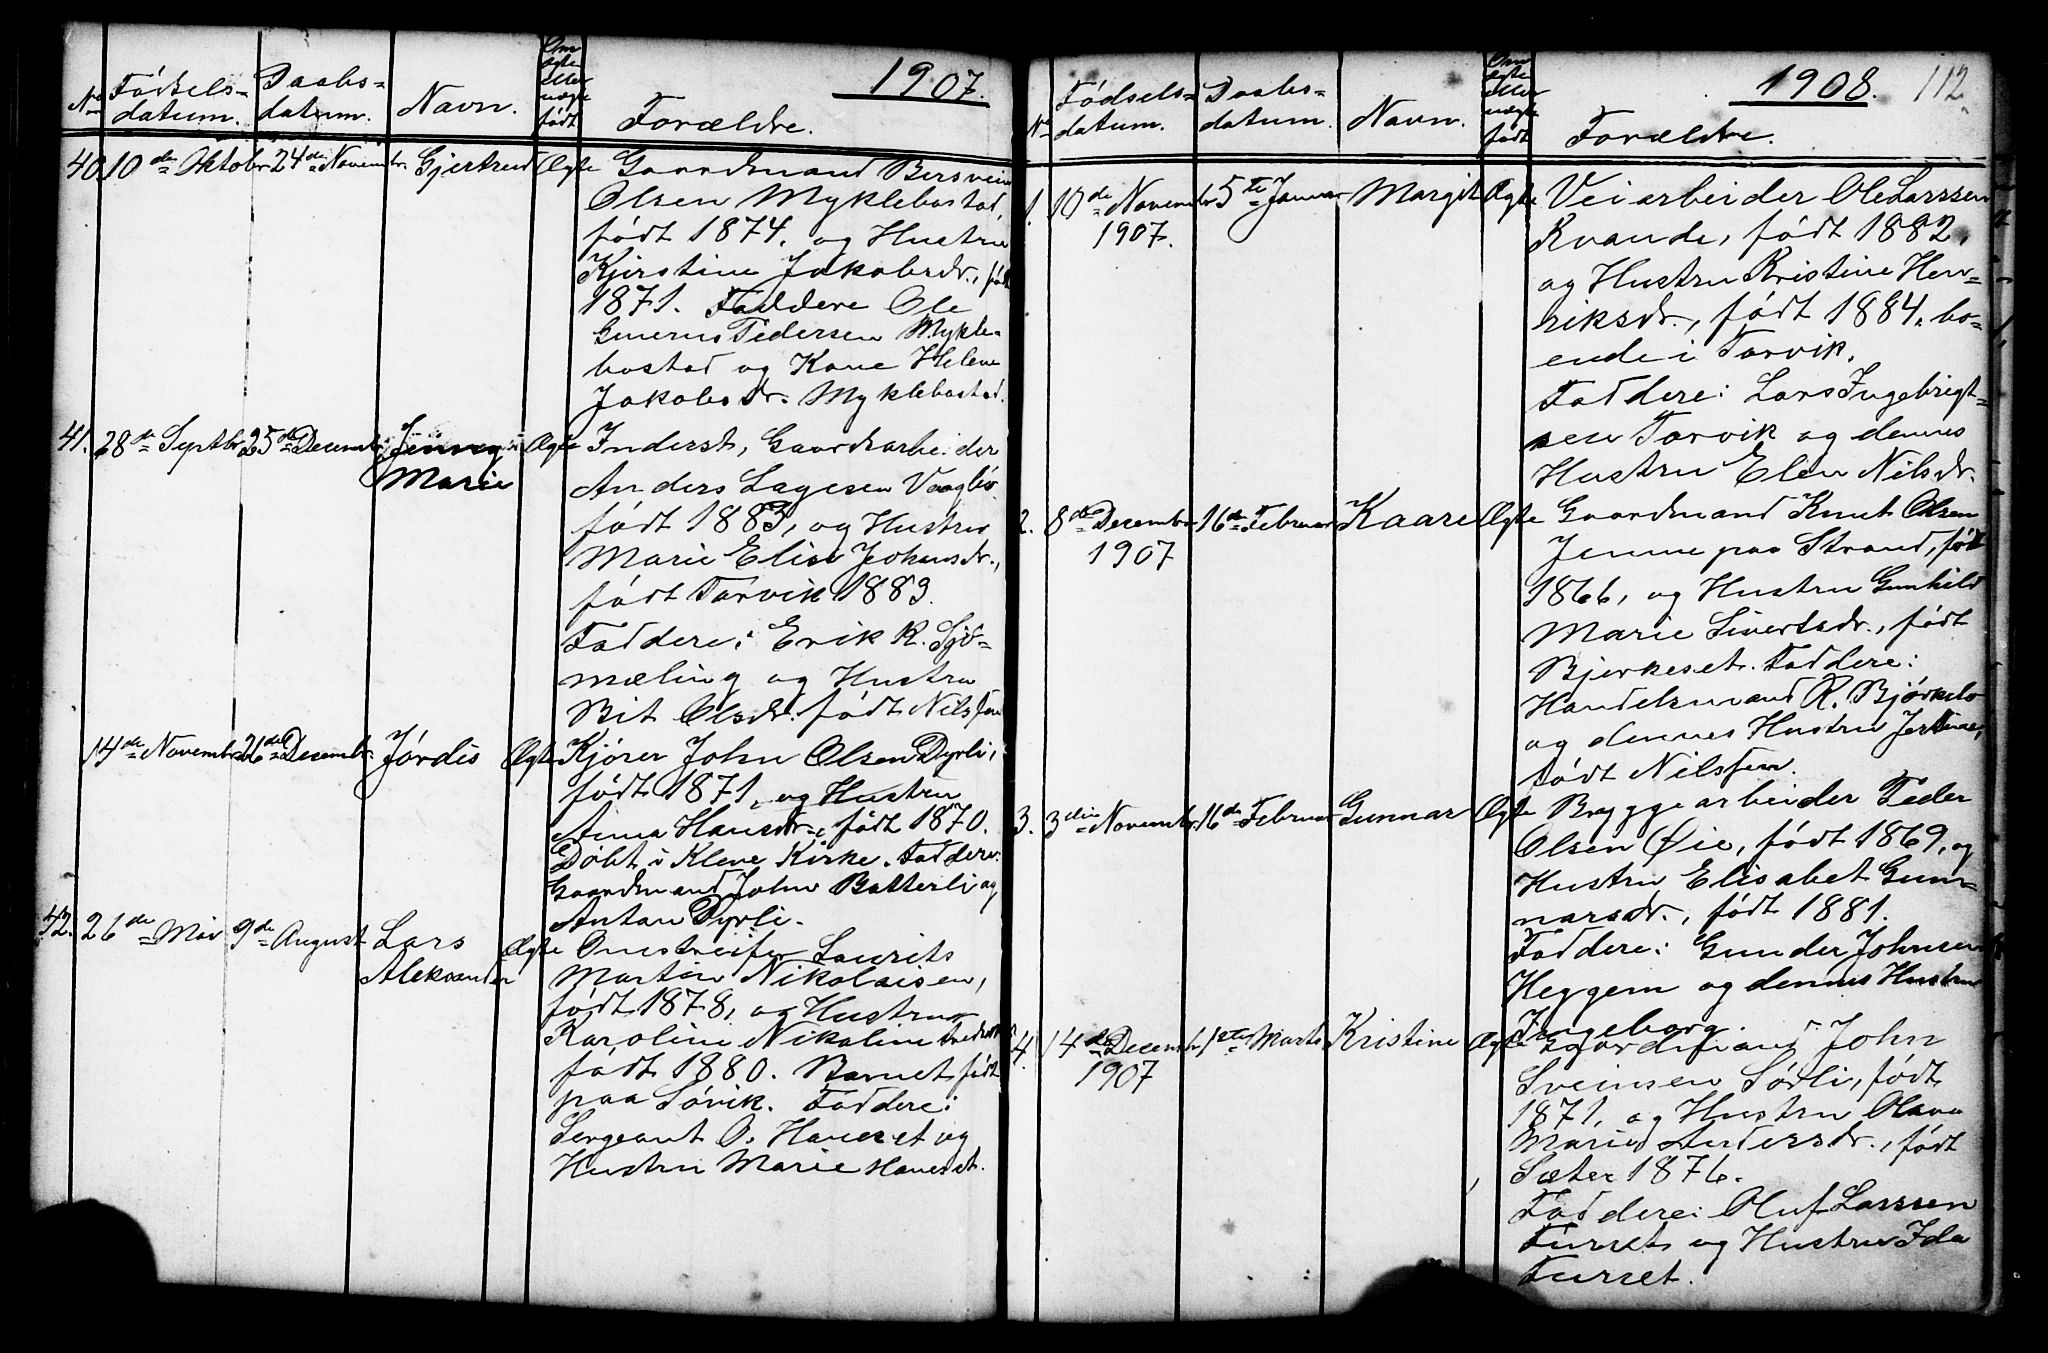 1907.
No
Födsels-
datum.
Daabs-
datum.
Navn.
Om
ægte
eller
uægte
født
Forældre.
40. 10de Oktobr 24de Novembr. Gjertrud Ægte Gaardmand Bersvein
Olsen Myklebostad,
født 1874, og Hustru
Kjerstine Jakobsdr., født
1871. Faddere Ole
Pedersen Mykle-
bostad og Kone Helene
Jakobsdr. Myklebostad.
41. 28de Septbr 25de Decembr. Jenny Ægte Inderst, Gaardsarbeider
Marie
Anders Lagesen Vaagbö
født 1883, og Hustru
Marie Elise Johansdr.,
født Torvik 1883.
Faddere: Erik R. Sjö-
mæling og Hustru
Bit Olsdr. født Nils
14de Novembr 26de Decembr. Jórdis Ægte Kjörer John Olsen Dyrli,
født 1871, og Hustru
Anna Hansdr., født 1870.
Döbt i Kleve Kirke. Faddere:
Gaardmand John Batterli og
Anton Dyrli.
42. 26de Mai 9de August Lars Ægte Omstreifer Laurits
Aleksander
Martin Nikolaisen,
født 1878, og Hustru
Karoline Nikoline
født 1880. Barnet født
paa Sövik. Faddere:
Sergeant O. Haueset og
Hustru Marie Haueset.
1908. 112
No
Födsels-
datum.
Daabs-
datum.
Navn.
Om
ægte
eller
uægte
født
Forældre.
1. 10de Novembr 5te Januar Margit Ægte Veiarbeider Ole Larssen
1907.
Kvande, født 1882,
og Hustru Kristine Hen-
riksdr., født 1884, bo-
ende i Torvik.
Faddere: Lars Ingebrigt-
sen Torvik og dennes
Hustru Elen Nilsdr.
2. 8de Decembr 16de Februar Kaare Ægte Gaardmand Knut Olsen
1907
Jenme paa Strand, født
1866, og Hustru Gunhild
Marie Sivertsdr., født
Bjerkeset. Faddere:
Handelsmand R. Björkelo
og dennes Hustru
født Nils
3. 3die Novembr. 16de Februar Gunnar Ægte Bryggearbeider Peder
Olsen Øie, født 1869, og
Hustru Elisabet Gun-
narsdr., født 1881.
Faddere: Gunder Johnsen
Heggem og dennes Hustru
Ingeborg.
4. 14de Decembr 1ste Marts Kristine Ægte Gaardmand John
1907
Sveinsen Södli, født
1871, og Hustru Olava
Marie Andersdr., født
Sæter 1876.
Faddere: Oluf Larssen
Furset og Hustru Ida
Furset.